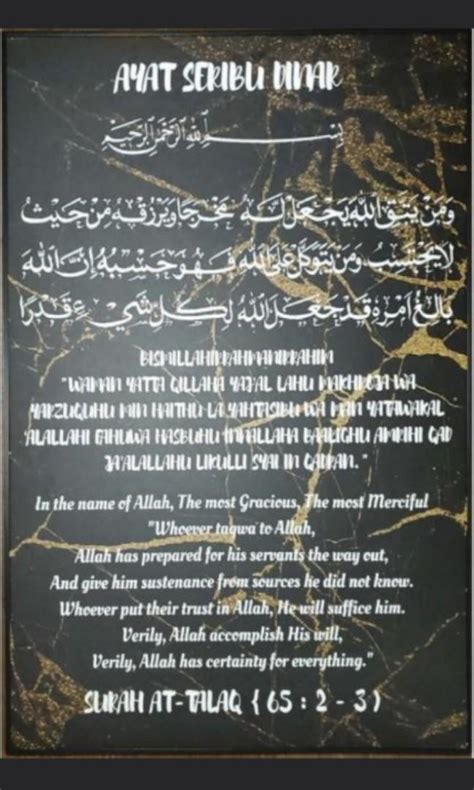 AYAT SERIBU DINAR
بِسْمِ اللهِ الرَّحْمٰنِ الرَّحِيْمِ
وَمَنْ يَتَّقِ اللهَ يَجْعَلْ لَهُ مَخْرَجًا وَيَرْزُقْهُ مِنْ حَيْثُ
لَا يَحْتَسِبُ وَمَنْ يَتَوَكَّلْ عَلَى اللهِ فَهُوَ حَسْبُهُ إِنَّ اللهَ
بَالِغُ أَمْرِهِ قَدْ جَعَلَ اللهُ لِكُلِّ شَيْءٍ قَدْرًا
BISMILLAHIRRAHMANIRRAHIM
"WAMAN YATTA QILLAHA YAJ'AL LAHU MAKHROJA WA
YARZUQUHU MIN HAITHU LA YAHTASIBU WA MAN YATAWAKAL
'ALALLAHI FAHUWA HASBUHU INNALLAHA BAALIGHU AMRIHI QAD
JA'ALALLAHU LIKULLI SYAI IN QADRAN."
In the name of Allah, The most Gracious, The most Merciful
"Whoever taqwa to Allah,
Allah has prepared for his servants the way out,
And give him sustenance from sources he did not know.
Whoever put their trust in Allah, He will suffice him.
Verily, Allah accomplish His will,
Verily, Allah has certainty for everything."
SURAH AT-TALAQ { 65 : 2 - 3 }